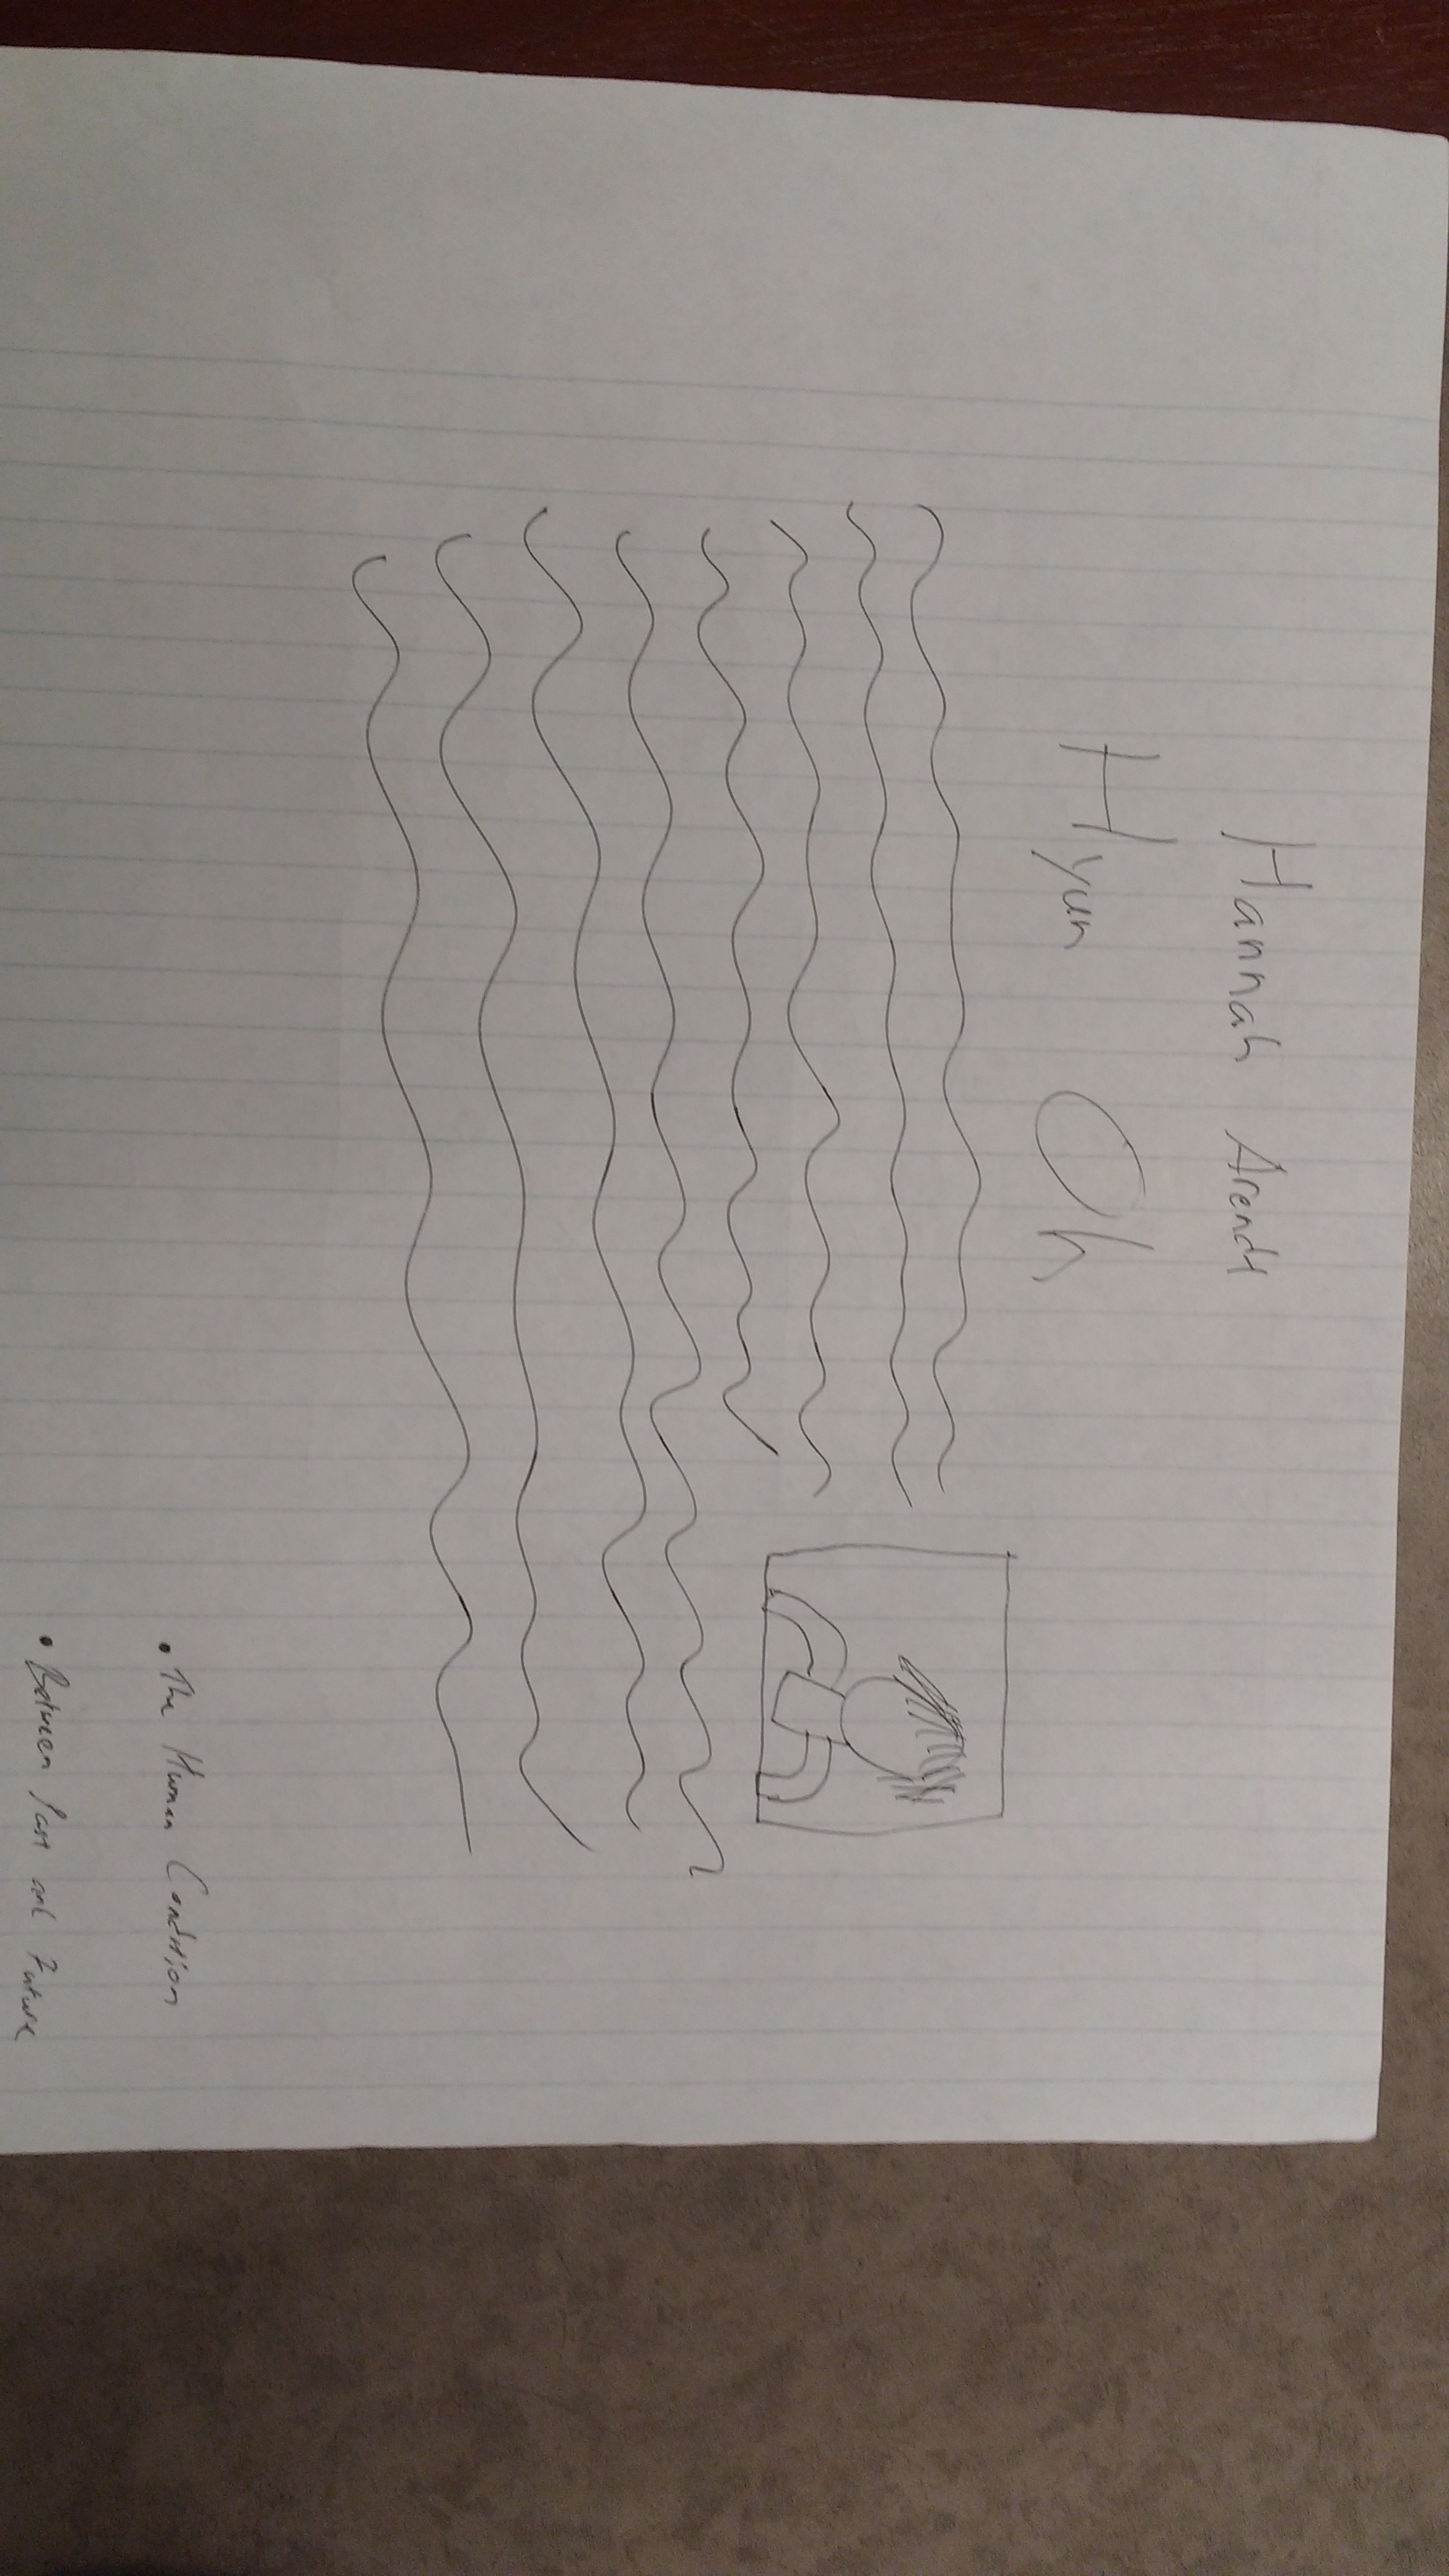 Hannah Arendt
Hyun Oh
• The Human Condition
• Between Past and Future